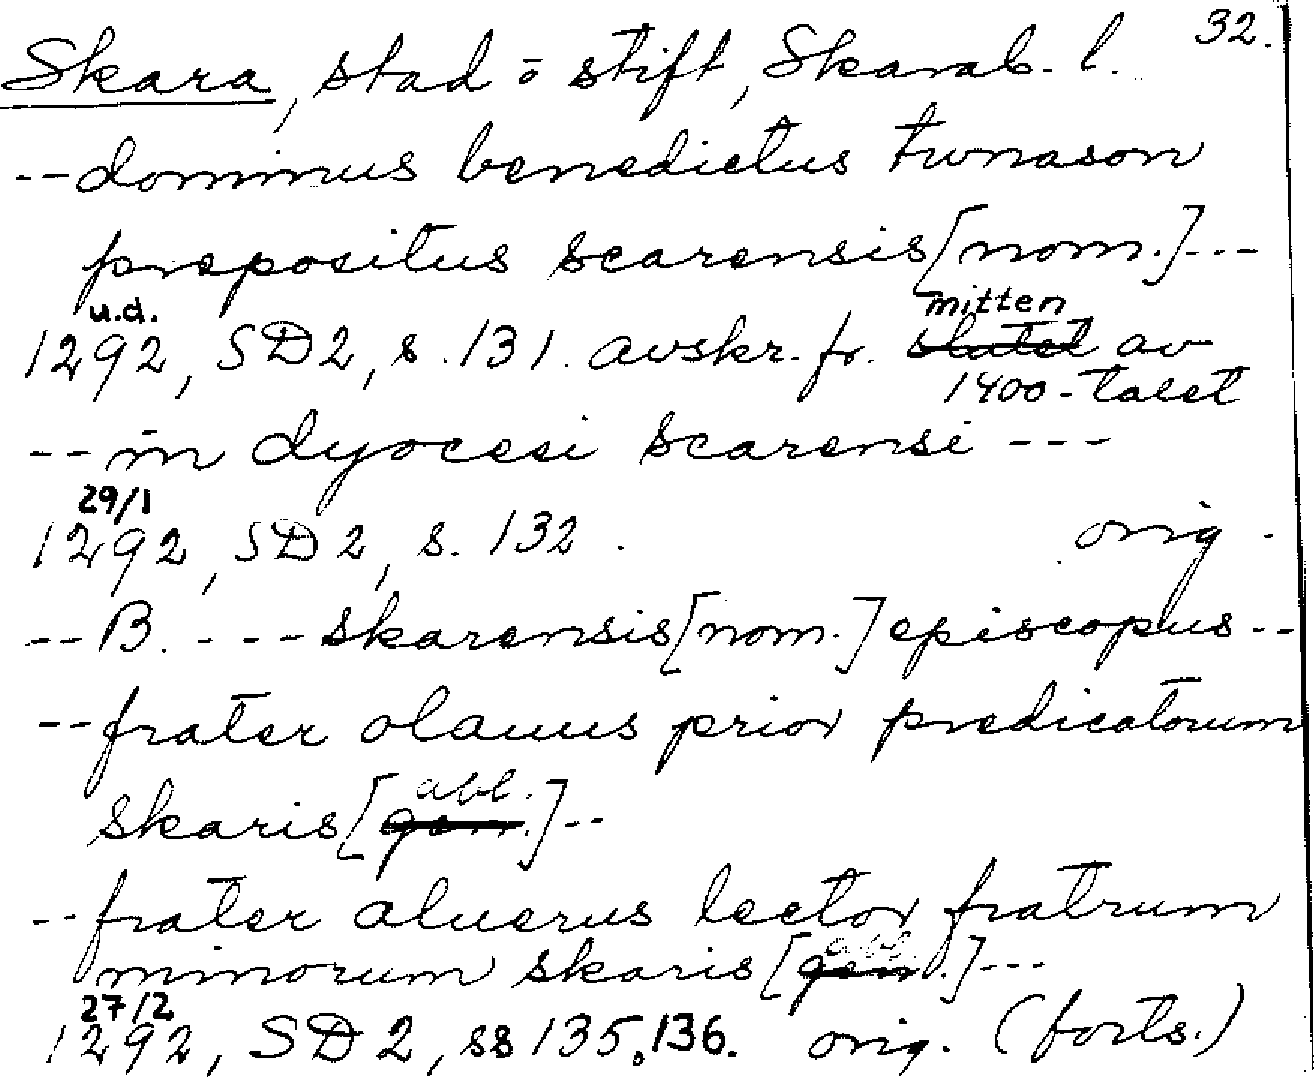 32.
Skara, stad o stift, Skarab. l.
--dominus benedictus tunason
prepositus scarensis [nom.]---
u.d. mitten
1292, SD2, s. 131. avskr. fr. slutet av
1400-talet
--in dyocesi scarensi ---
29/1
1292, SD2, s. 132. orig.
--B. ---skarensis [nom.] episcopus--
--frater olauus prior predicatorum
skaris [gen. abl.]--
--frater aluerus lector fratrum
minorum skaris [gen. abl.]---
27/2
1292, SD2, ss 135, 136. orig. (forts.)